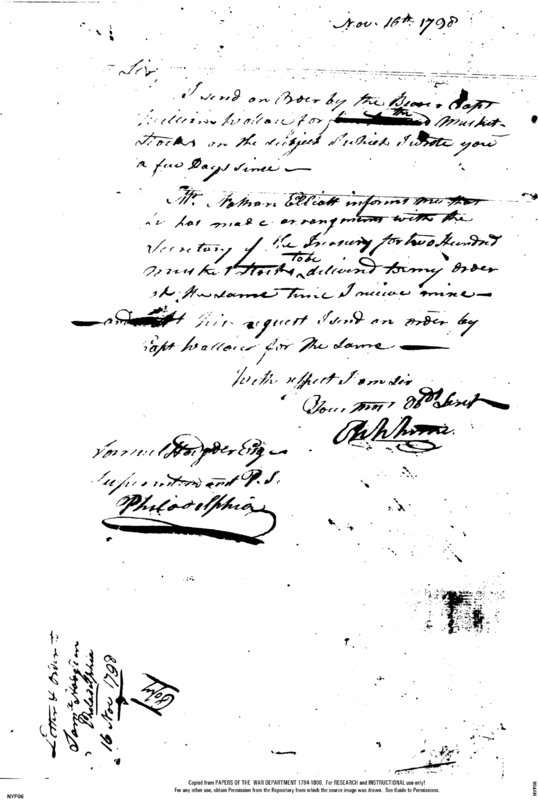 Nov. 16th 1798
Sir,
I send an Order by the Bearer Capt
William Wallace for the Musket
Stocks on the subject of which I wrote you
a few Days since —
Mr. Nathan Elliott informs me that
he has made arrangements with the
Secretary of the Treasury for two Hundred
musket Stocks to be delivered to my order
at the same time I receive mine —
at his request I send an order by
Capt Wallace for the same —
With respect I am Sir
Your most Obdt Servt
Samuel Hodgdon Esqr
Superintendant P. S.
Philadelphia
Letter & Order
Saml Hodgdon
Philadelphia
16 Nov 1798
Copy
Copied from PAPERS OF THE WAR DEPARTMENT 1784-1800. For RESEARCH and INSTRUCTIONAL use only!
For any other use, obtain Permission from the Repository from which the source image was drawn. See Guide to Permissions.
NYF06
NYF06